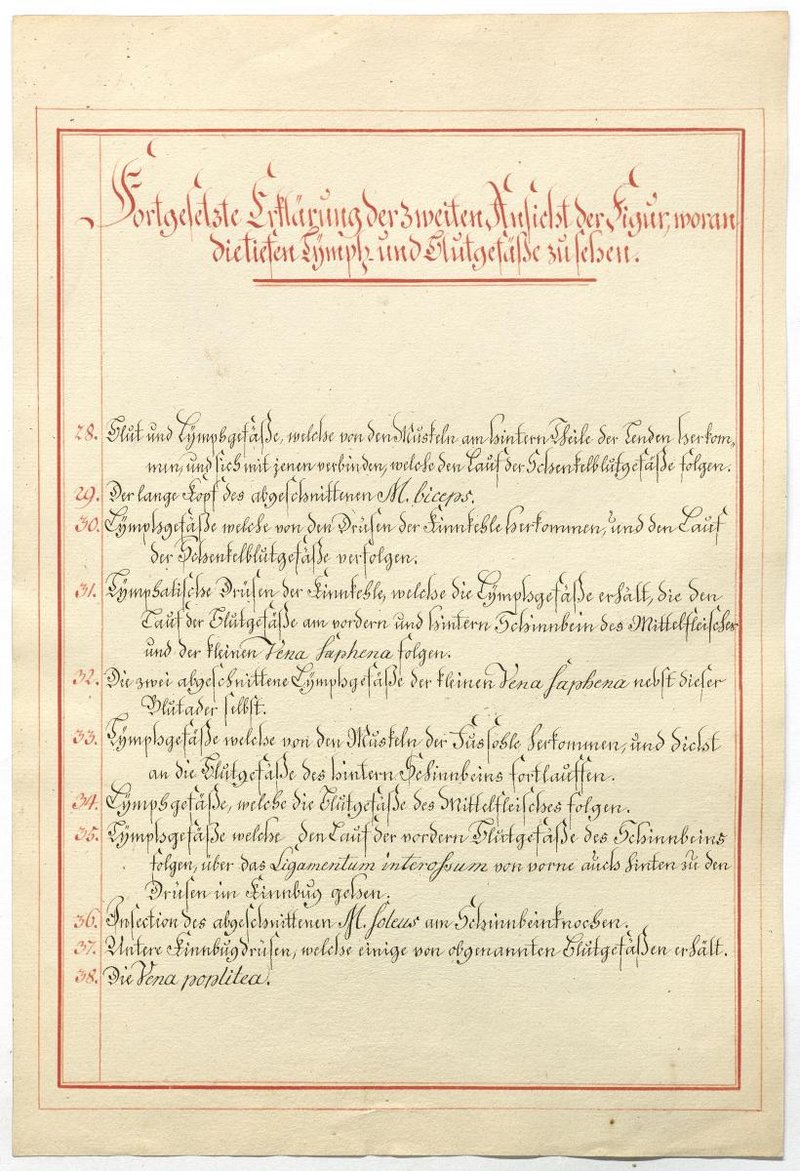 Fortgesetzte Erklärung der zweiten Ansicht der Figur, woran
die tiefen Lymph- und Blutgefäße zu sehen.
28. Blut und Lymphgefäße, welche von den Muskeln am hintern Theile der Lenden herkom-
men, und sich mit jenen verbinden, welche den Lauf der Schenkelblutgefäße folgen.
29. Der lange Kopf des abgeschnittenen M. biceps.
30. Lymphgefäße welche von den Drüsen der Kinnkehle herkommen, und den Lauf
der Schenkelblutgefäße verfolgen.
31. Lymphatische Drüsen der Kinnkehle, welche die Lymphgefäße erhält, die den
Lauf der Blutgefäße am vordern und hintern Schinnbein des Mittelfleisches
und der kleinen Vena saphena folgen.
32. Die zwei abgeschnittene Lymphgefäße der kleinen Vena saphena nebst dieser
Blutader selbst.
33. Lymphgefäße welche von den Muskeln der Fussohle herkommen, und dicht
an die Blutgefäße des hintern Schinnbeins fortlauffen.
34. Lymphgefäße, welche die Blutgefäße des Mittelfleisches folgen.
35. Lymphgefäße welche den Lauf der vordern Blutgefäße des Schinnbeins
folgen, über das Ligamentum interossum von vorne auch hinten zu den
Drüsen im Kinnbug gehen.
36. Insection des abgeschnittenen M. soleus am Schinnbeinknochen.
37. Untere Kinnbugdrüsen, welche einige von obgenannten Blutgefäßen erhält.
38. Die Vena poplitea.